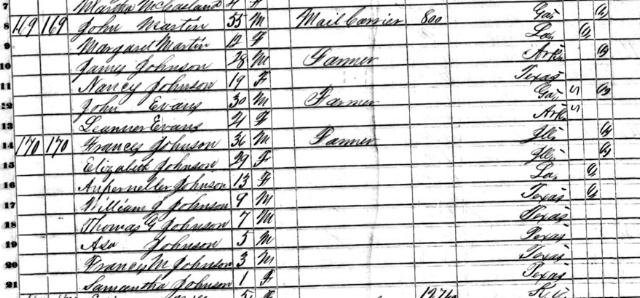 7 Martha McFarland F
8 169 169 John Martin 55 M Mail Carrier 800 Ga
9 Margaret Martin 12 F La
10 James Johnson 28 M Farmer Ark
11 Nancy Johnson 19 F Texas
12 John Evans 30 M Farmer Ga
13 Evans 21 F Ark
14 170 170 Francis Johnson 36 M Farmer Ills
15 Elizabeth Johnson 29 F Ills
16 Johnson 13 F La
17 William J Johnson 9 M Texas
18 Thomas G Johnson 7 M Texas
19 Asa Johnson 5 M Texas
20 Francis M Johnson 3 M Texas
21 Samantha Johnson 1 F Texas